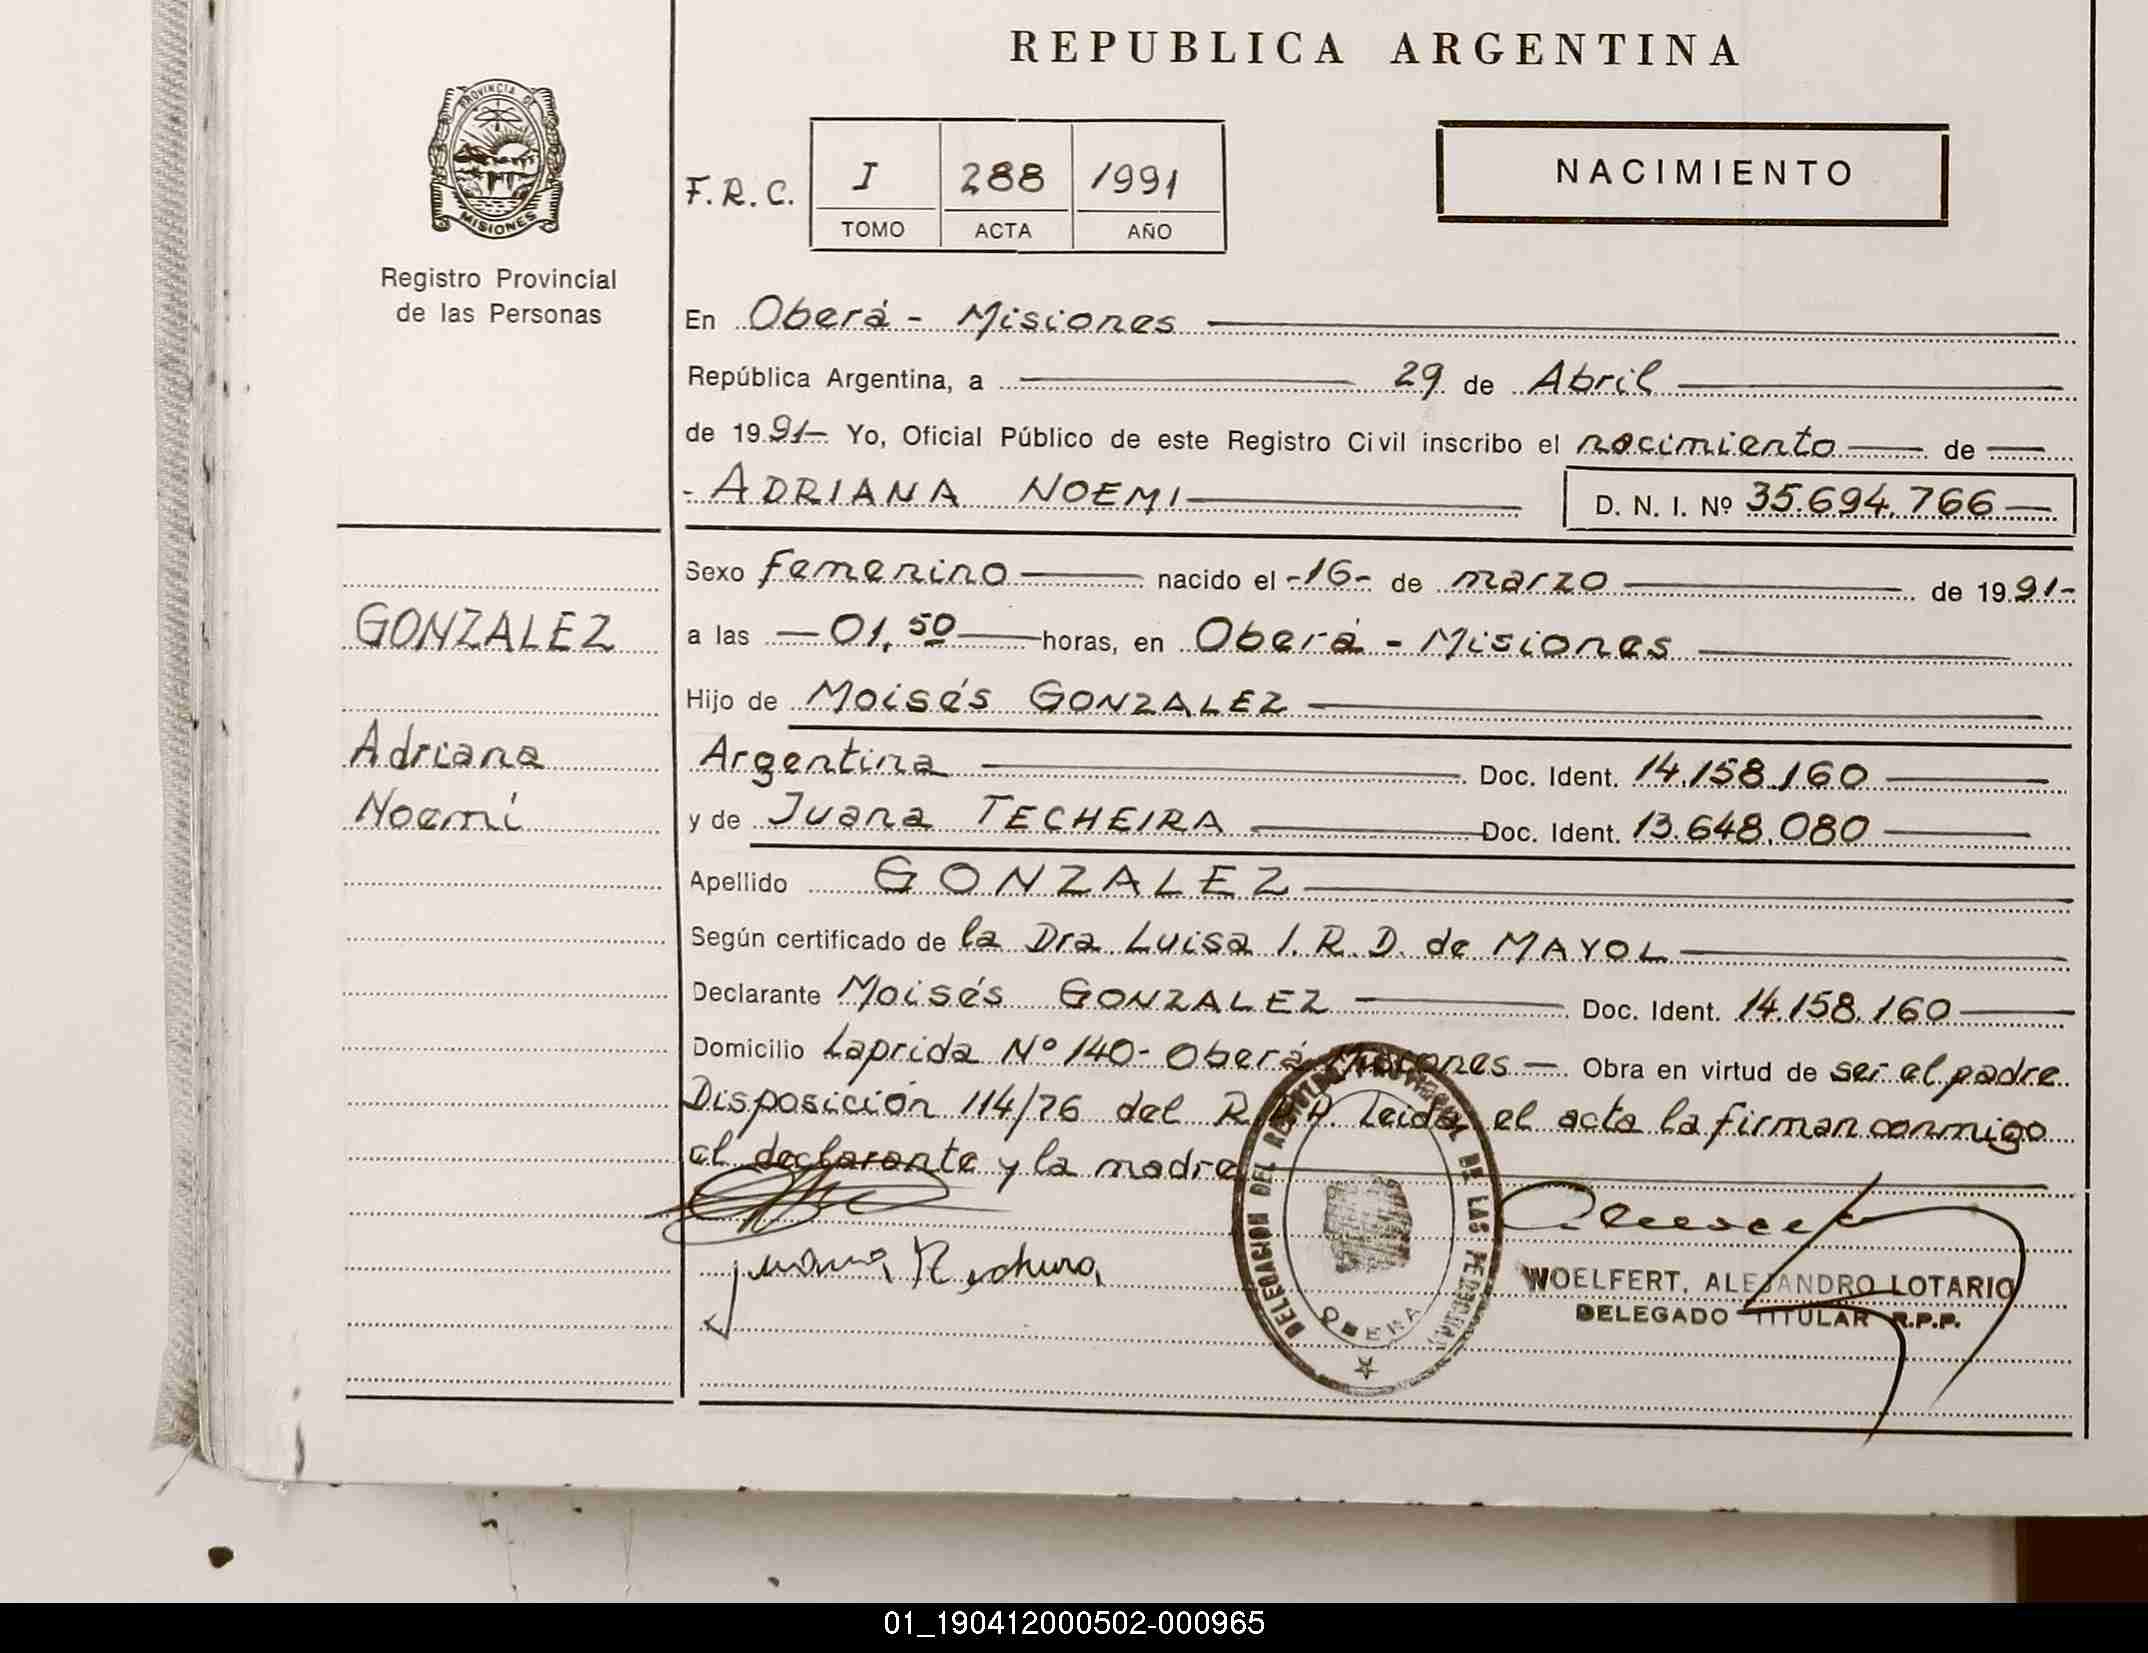 REPUBLICA ARGENTINA
PROVINCIA DE
MISIONES
Registro Provincial
de las Personas
F.R.C. I 288 1991
TOMO ACTA AÑO
NACIMIENTO
En Oberá - Misiones
República Argentina, a 29 de Abril
de 1991- Yo, Oficial Público de este Registro Civil inscribo el nacimiento de
- ADRIANA NOEMI D. N. I. Nº 35.694.766
Sexo femenino nacido el -16- de marzo de 1991-
GONZALEZ
a las 01,50 horas, en Oberá - Misiones
Hijo de Moisés GONZALEZ
Adriana
Argentina Doc. Ident. 14.158.160
Noemí
y de Juana TECHEIRA Doc. Ident. 13.648.080
Apellido GONZALEZ
Según certificado de la Dra. Luisa I.R.D. de MAYOL
Declarante Moisés GONZALEZ Doc. Ident. 14.158.160
Domicilio Laprida Nº 140- Oberá Misiones Obra en virtud de ser el padre.
Disposición 114/76 del R.P.P. Leida el acta la firman conmigo
el declarante y la madre
DELEGACION DEL REGISTRO PROVINCIAL DE LAS PERSONAS
OBERA
WOELFERT, ALEJANDRO LOTARIO
DELEGADO TITULAR R.P.P.
01_190412000502-000965